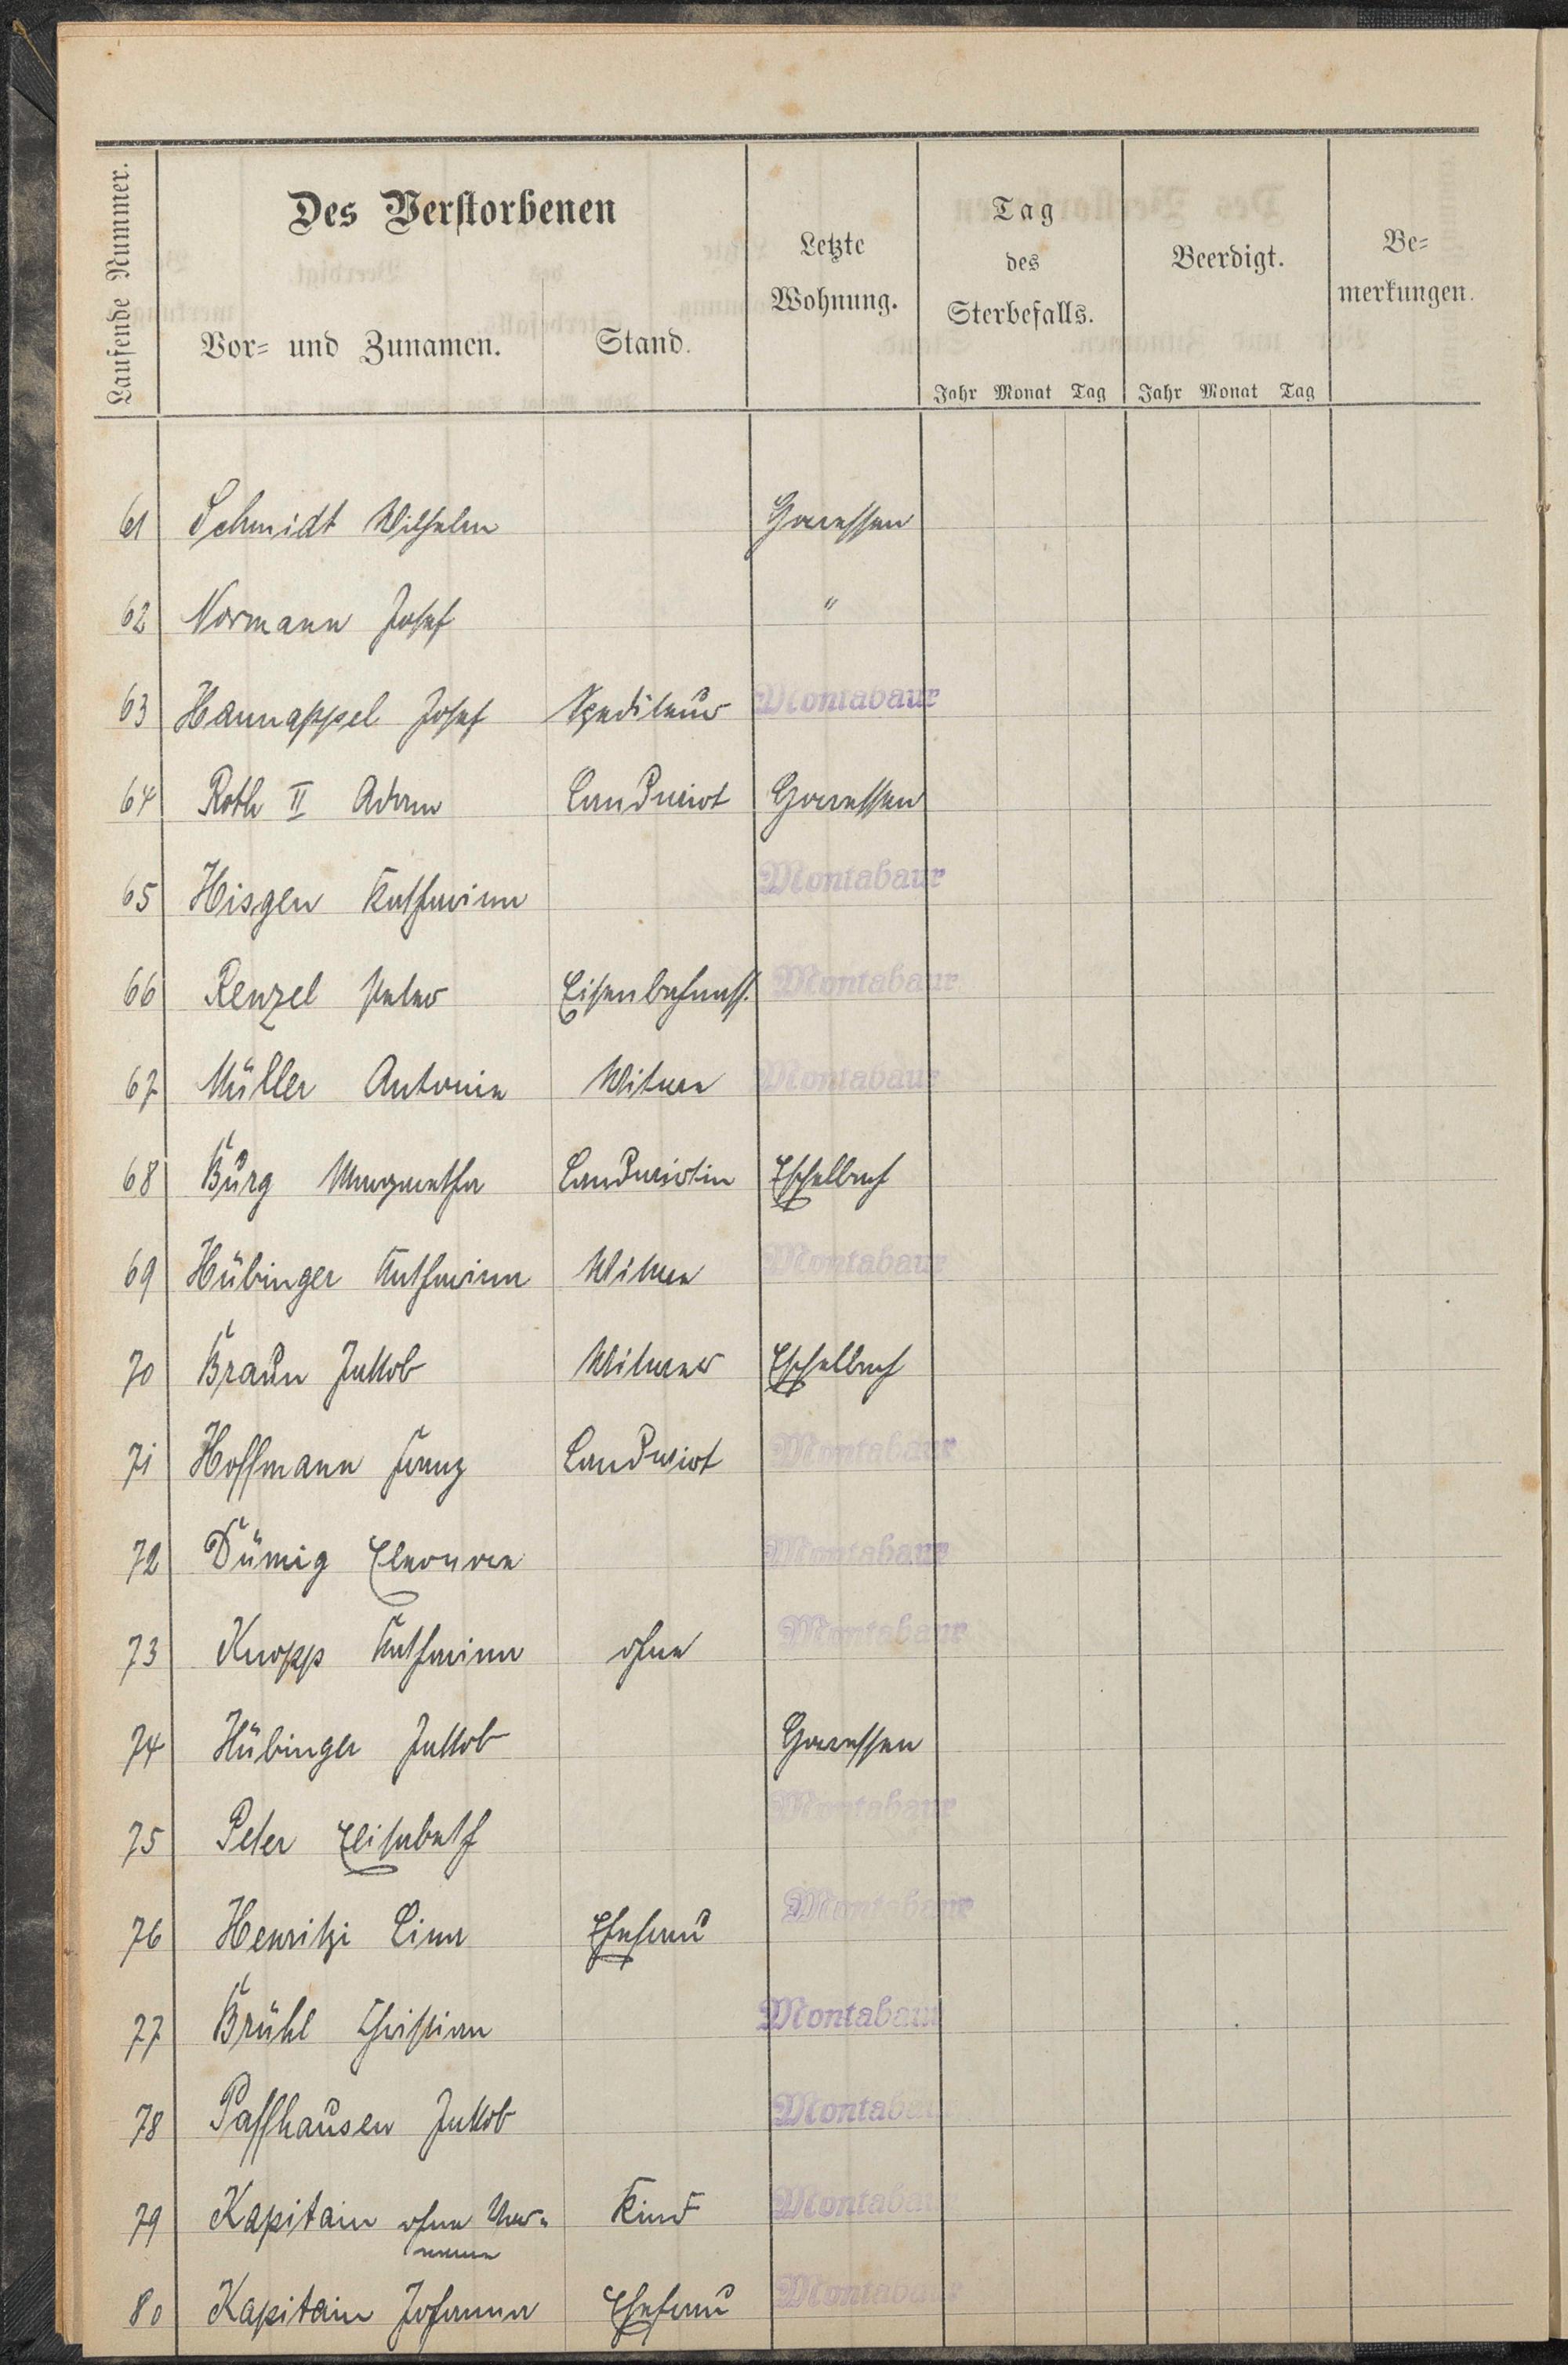 Laufende Nummer.
Des Verstorbenen
Vor- und Zunamen.
Stand.
Letzte
Wohnung.
Tag
des
Sterbefalls.
Jahr Monat Tag
Beerdigt.
Jahr Monat Tag
Be-
merkungen.
61 Schmidt Wilhelm Horressen
62 Normann Josef "
63 Hannappel Josef Spediteur Montabaur
64 Roth II Adam Landwirt Horressen
65 Hisgen Katharina Montabaur
66 Renzel Peter Eisenbahnass. Montabaur
67 Müller Antonie Witwe Montabaur
68 Burg Margaretha Landwirtin Eschelbach
69 Hübinger Katharina Witwe Montabaur
70 Braun Jakob Witwer Eschelbach
71 Hoffmann Franz Landwirt Montabaur
72 Dümig Eleonore Montabaur
73 Knopp Katharina ohne Montabaur
74 Hübinger Jakob Horressen
75 Peter Elisabeth Montabaur
76 Henritzi Lina Ehefrau Montabaur
77 Brühl Christian Montabaur
78 Paffhausen Jakob Montabaur
79 Kapitain ohne Vor- Kind Montabaur
namen
80 Kapitain Johanna Ehefrau Montabaur